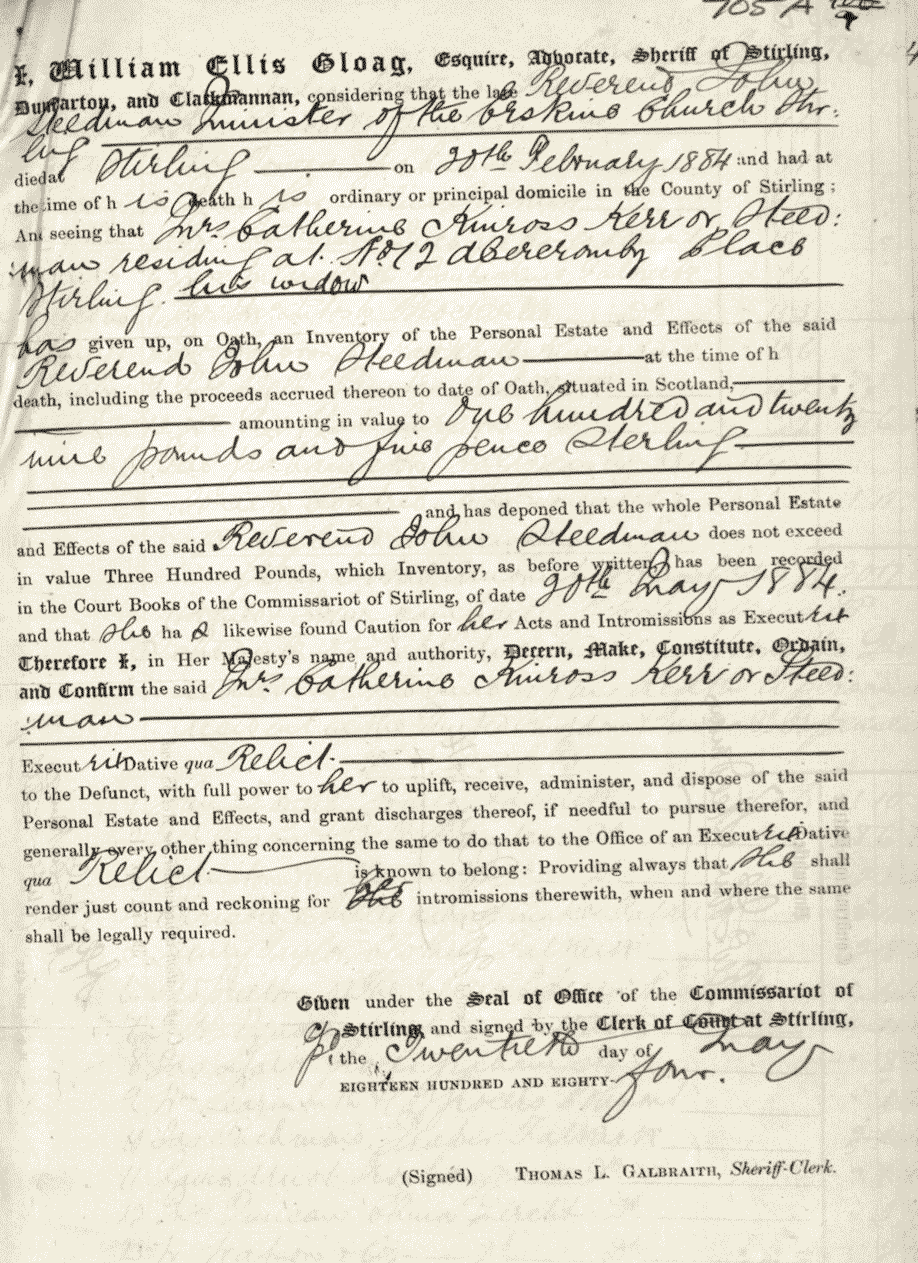 705 A
I, William Ellis Gloag, Esquire, Advocate, Sheriff of Stirling,
Dumbarton, and Clackmannan, considering that the late Reverend John
Steedman Minister of the Erskine Church Stir:
ling
died at Stirling on 20th February 1884 and had at
the time of h is death h is ordinary or principal domicile in the County of Stirling;
And seeing that Mrs Catherine Kinross Kerr or Steed:
:man residing at No 12 Abercromby Place
Stirling his widow
has given up, on Oath, an Inventory of the Personal Estate and Effects of the said
Reverend John Steedman at the time of h
death, including the proceeds accrued thereon to date of Oath, situated in Scotland,
amounting in value to One hundred and twenty
nine pounds and five pence Sterling
and has deponed that the whole Personal Estate
and Effects of the said Reverend John Steedman does not exceed
in value Three Hundred Pounds, which Inventory, as before written, has been recorded
in the Court Books of the Commissariot of Stirling, of date 20th May 1884.
and that She ha s likewise found Caution for her Acts and Intromissions as Executrix
Therefore I, in Her Majesty's name and authority, Decern, Make, Constitute, Ordain,
and Confirm the said Mrs Catherine Kinross Kerr or Steed:
:man
Executrix Dative qua Relict
to the Defunct, with full power to her to uplift, receive, administer, and dispose of the said
Personal Estate and Effects, and grant discharges thereof, if needful to pursue therefor, and
generally every other thing concerning the same to do that to the Office of an Executrix Dative
qua Relict is known to belong: Providing always that She shall
render just count and reckoning for intromissions therewith, when and where the same
shall be legally required.
Given under the Seal of Office of the Commissariot of
Stirling, and signed by the Clerk of Court at Stirling,
the Twentieth day of May
EIGHTEEN HUNDRED AND EIGHTY-four.
(Signed) THOMAS L. GALBRAITH, Sheriff-Clerk.